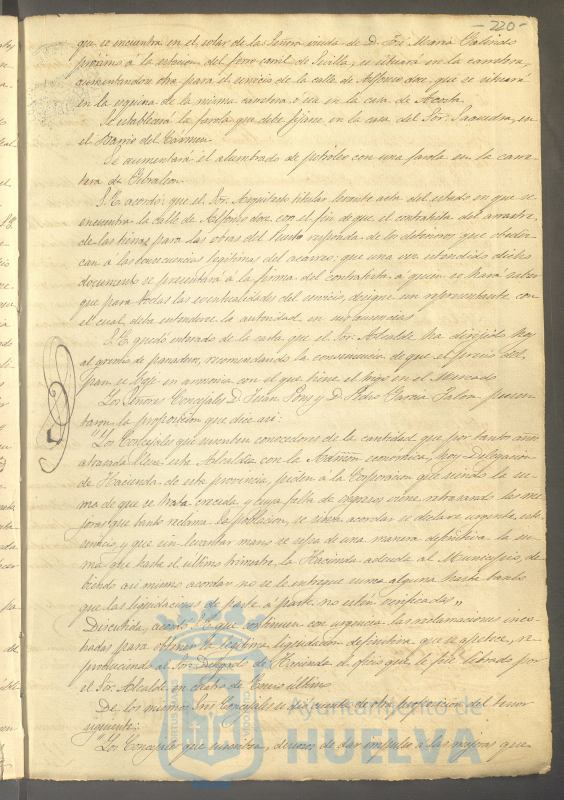 - 220 -
que se encuentra en el solar de los Señores viuda de D. José María Galindo
próximo á la estacion del ferro carril de Sevilla, se situará en la carretera,
aumentandose otra para el servicio de la calle de Alfonso doce, que se situará
en la esquina de la misma carretera ó sea en la casa de Acosta.
Se establecerá la farola que debe fijarse en la casa del Sor. Saavedra, en
el Barrio del Cármen.
Se aumentará el alumbrado de petroleo con una farola en la carre-
tera de Gibraleon.
S. E. acordó: que el Sor. Arquitecto titular levante acta del estado en que se
encuentra la calle de Alfonso doce con el fin de que el contratista del arrastre
de las tierras para las obras del Puerto responda de los deterioros que obedez-
can á las consecuencias legítimas del acarreo; que una vez estendido dicho
documento se presentará á la firma del contratista á quien se hará saber
que para todas las eventualidades del servicio, designe un representante con
el cual deba entenderse la autoridad en sus
S. E. quedó enterado de la carta que el Sor. Alcalde ha dirijido hoy
al gremio de panaderos, recomendando la conveniencia de que el precio del
pan se fije en armonia con el que tiene el trigo en el Mercado
Los Señores Concejales D. Juan Pons y D. Pedro Garcia Jalon presen-
taron la proposicion que dice asi:
"Los Concejales que suscriben conocedores de la cantidad que por tantos años
atrasada lleva esta Alcaldia con la Admon economica, hoy Delegacion
de Hacienda de esta provincia, piden á la Corporacion que siendo la su-
ma de que se trata crecida y cuya falta de ingresos viene retrasando las me-
joras que tanto reclama la poblacion, se sirva acordar se declare urgente, este
servicio, y que sin levantar mano se sepa de una manera definitiva la su-
ma que hasta el ultimo trimestre la Hacienda adeuda al Municipio, de-
biendo asi mismo acordar no se le entregue suma alguna hasta tanto
que las liquidaciones de parte á parte no esten verificadas"
Discutida, acordó S. E. que continuen con urgencia las reclamaciones incoa-
hadas para obtener la legitima liquidacion definitiva que se apetece, re-
produciendo al Sor. Delegado de Hacienda el oficio que le fue librado por
el Sor. Alcalde en cuatro de Enero último
De los mismos Sres Concejales se dió cuenta de otra proposicion del tenor
siguiente:
"Los Concejales que suscriben, deseosos de dar impulso á las mejoras que
Ayuntamiento de
HUELVA